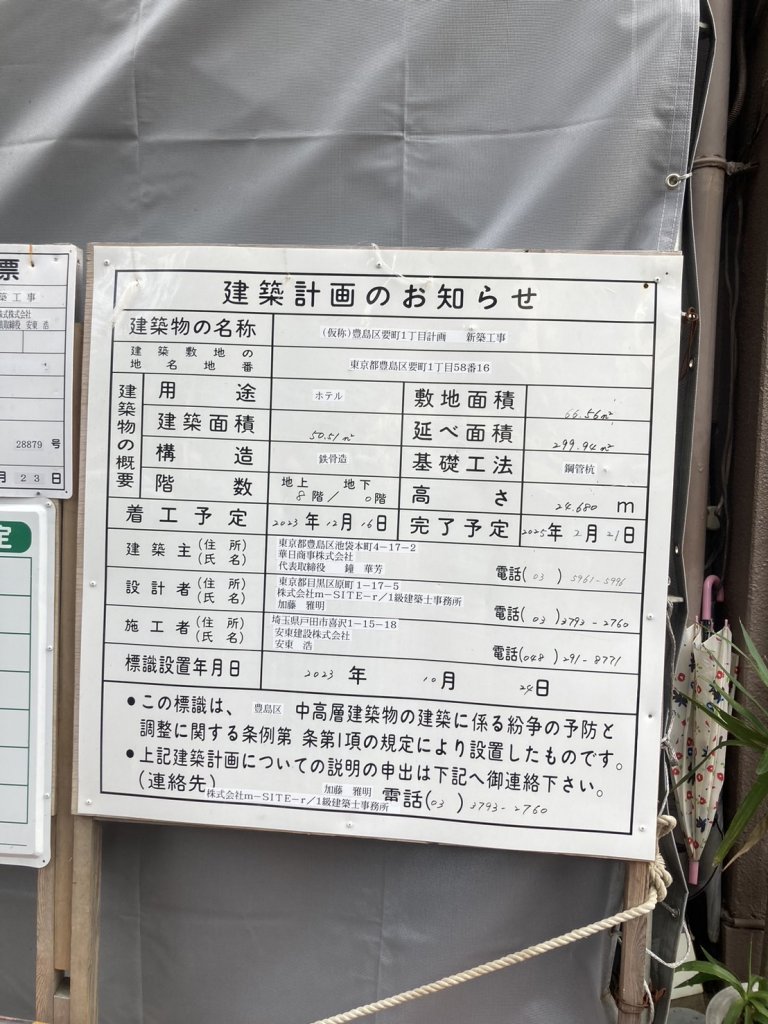 票
築工事
安東 浩
28879 号
月 23 日
定
建築計画のお知らせ
建築物の名称 (仮称)豊島区要町1丁目計画 新築工事
建築敷地の地名地番 東京都豊島区要町1丁目58番16
建築物の概要
用途 ホテル 敷地面積 66.56㎡
建築面積 50.51㎡ 延べ面積 299.94㎡
構造 鉄骨造 基礎工法 鋼管杭
階数 地上 8階/地下 0階 高さ 24.680 m
着工予定 2023年12月16日 完了予定 2025年2月21日
建築主(住所)(氏名) 東京都豊島区池袋本町4-17-2
華日商事株式会社
代表取締役 鐘 華芳 電話(03)5961-5996
設計者(住所)(氏名) 東京都目黒区原町1-17-5
株式会社m-SITE-r/1級建築士事務所
加藤 雅明 電話(03)3793-2760
施工者(住所)(氏名) 埼玉県戸田市喜沢1-15-18
安東建設株式会社
安東 浩 電話(048)291-8771
標識設置年月日 2023年 10月 24日
●この標識は、豊島区 中高層建築物の建築に係る紛争の予防と
調整に関する条例第 条第1項の規定により設置したものです。
●上記建築計画についての説明の申出は下記へ御連絡下さい。
(連絡先) 加藤 雅明 電話(03)3793-2760
株式会社m-SITE-r/1級建築士事務所